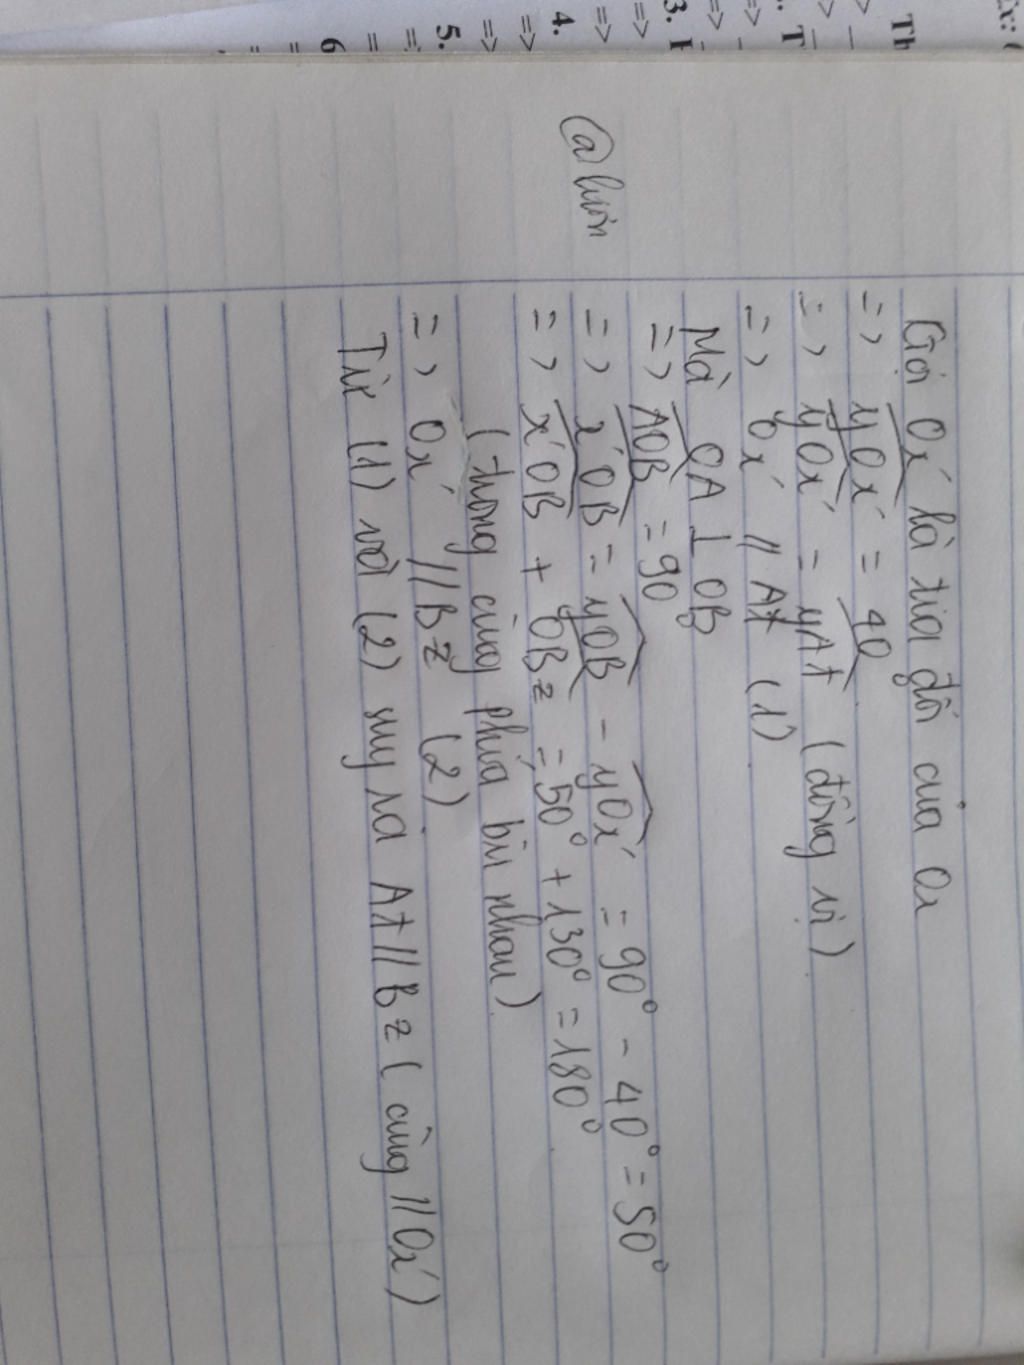 Ex: (
Th
T
3. F
=>
4.
=>
5.
=
6
Gọi Ox' là tia đối của Ox
=> yOx' = 40
=> yOx' = yAt (đồng vị)
=> Ox' // At (1)
Mà OA ⊥ OB
=> AOB = 90
=> x'OB = yOB - yOx' = 90° - 40° = 50°
=> x'OB + OBz = 50° + 130° = 180°
(trong cùng phía bù nhau)
=> Ox' // Bz (2)
Từ (1) và (2) suy ra At // Bz (cùng // Ox')